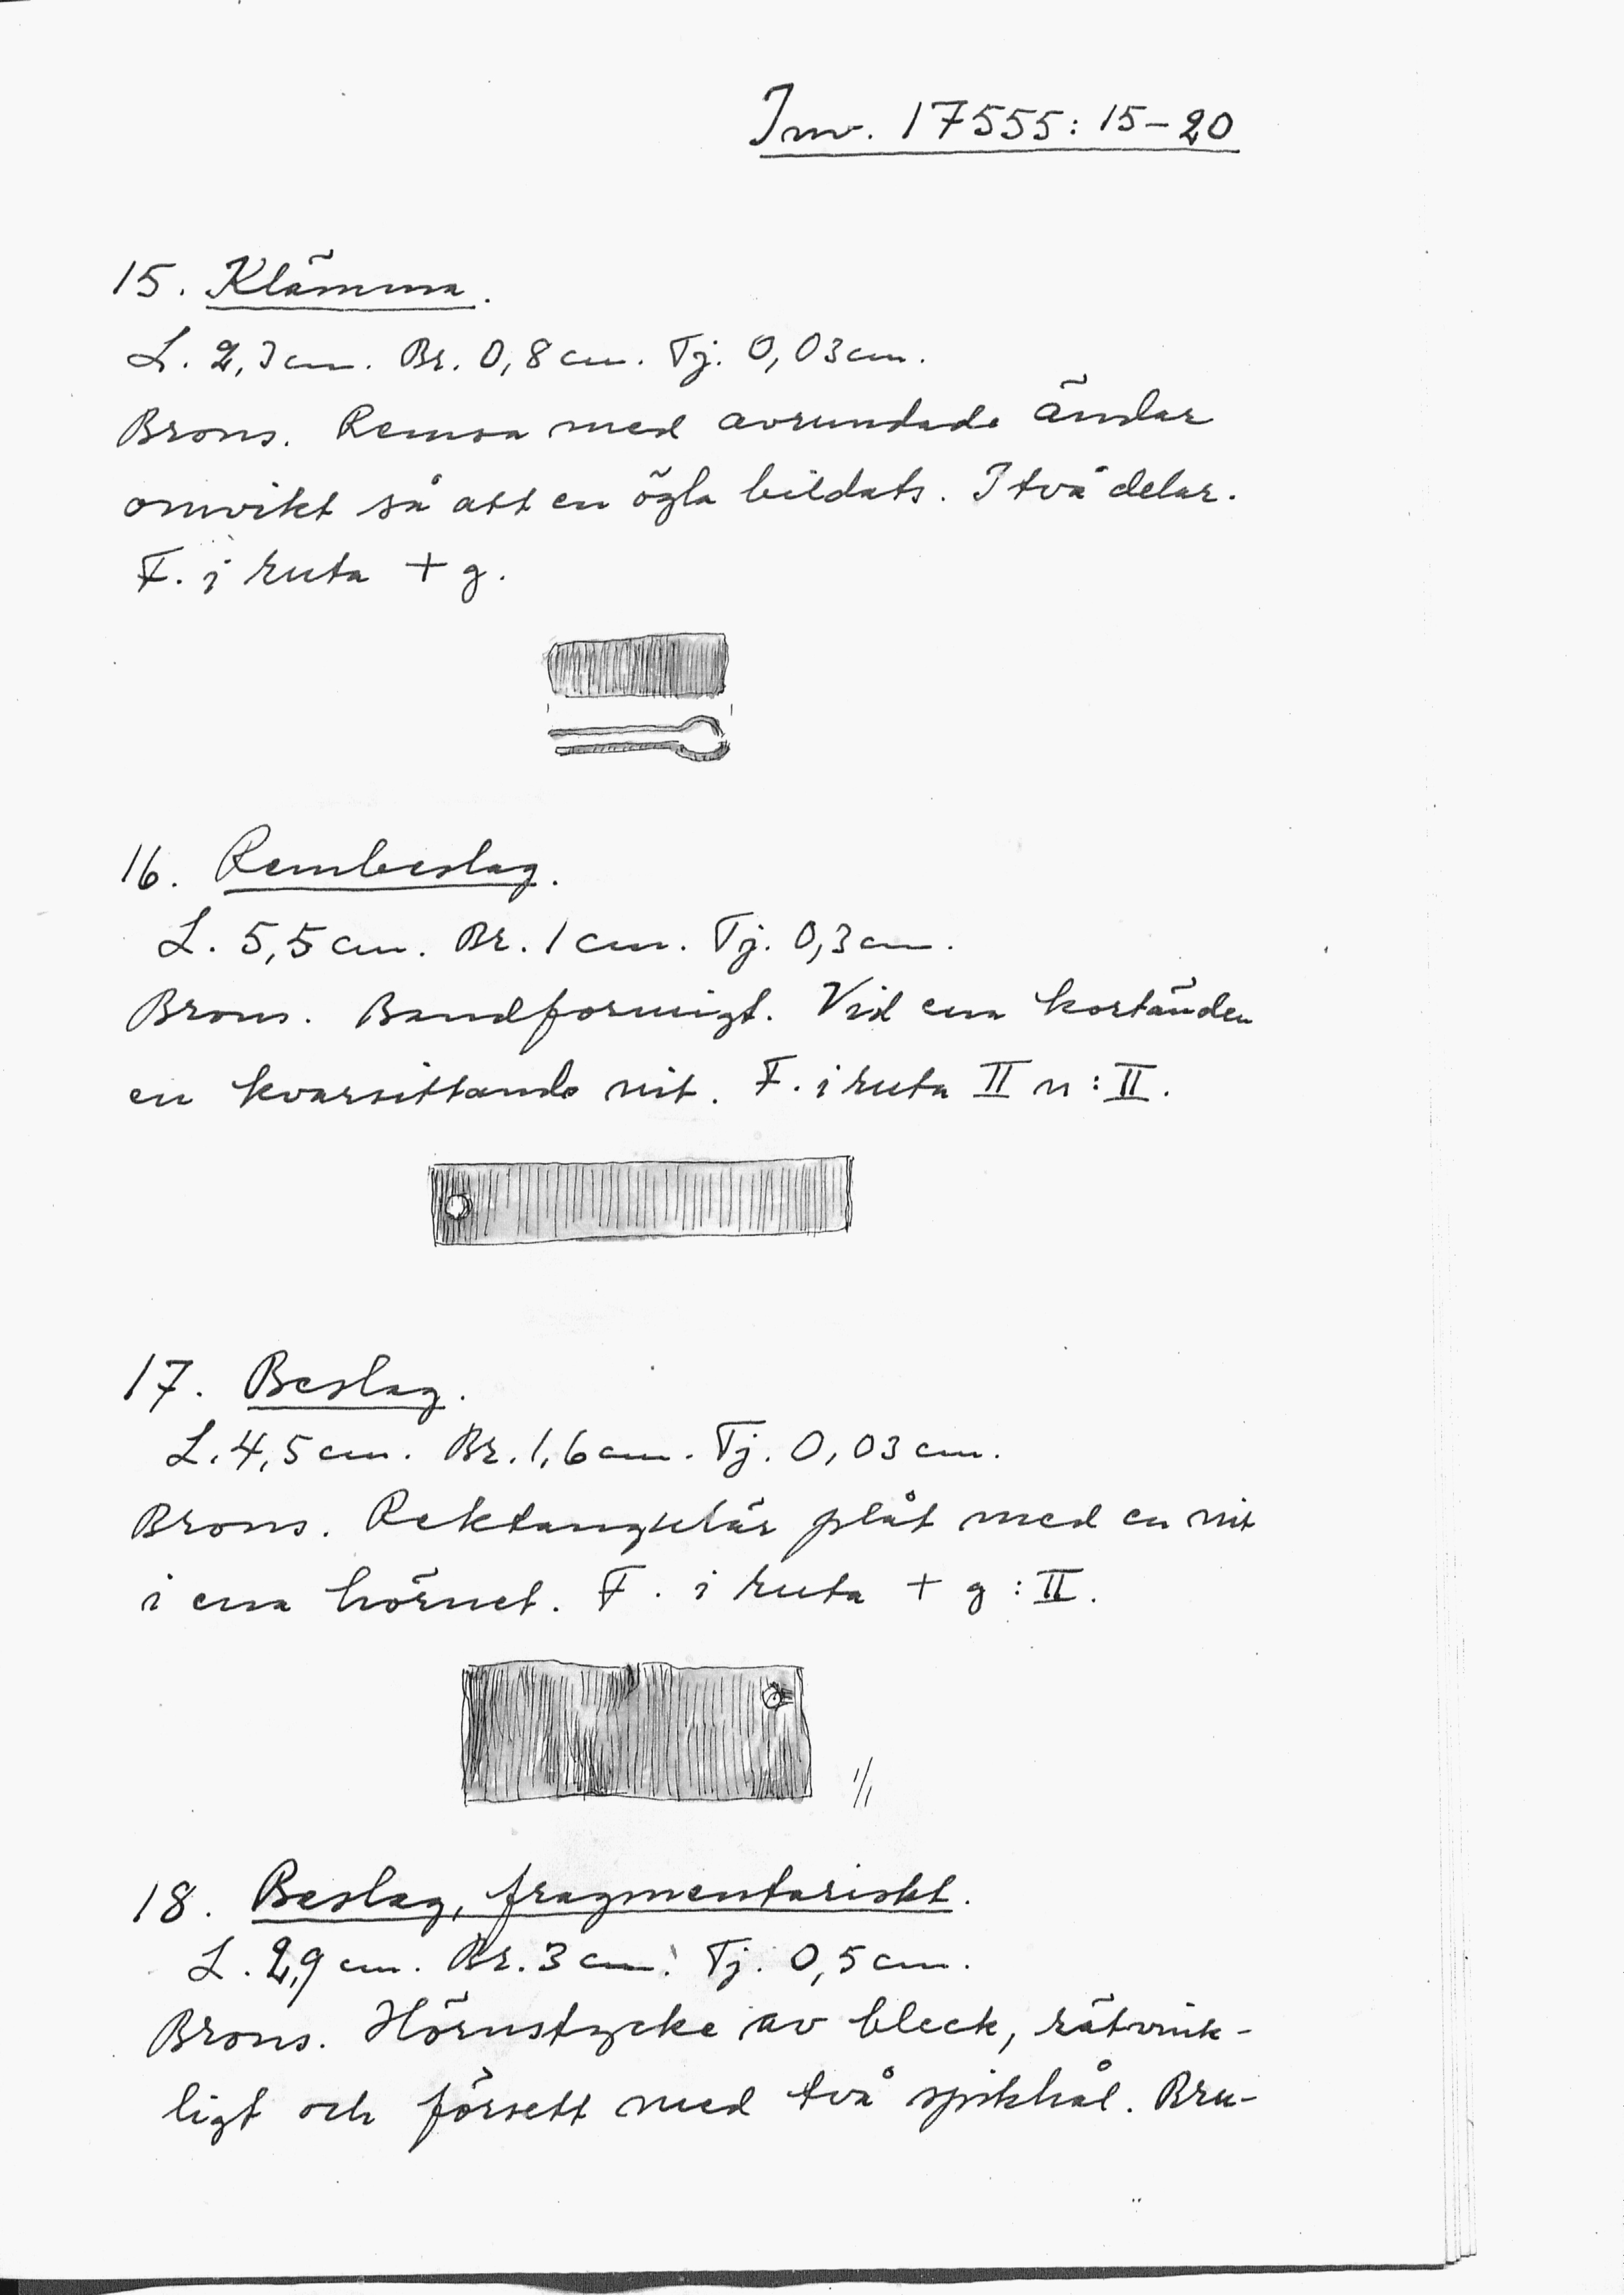 Inv. 17555: 15-20
15. Klämma.
L. 2,3 cm. Br. 0,8 cm. Tj. 0,03 cm.
Brons. Remsa med avrundade ändar
omvikt så att en ögla bildats. I två delar.
F. i ruta + g.
16. Rembeslag.
L. 5,5 cm. Br. 1 cm. Tj. 0,3 cm.
Brons. Bandformigt. Vid ena kortänden
en kvarsittande nit. F. i ruta II n : II.
17. Beslag.
L. 4,5 cm. Br. 1,6 cm. Tj. 0,03 cm.
Brons. Rektangulär plåt med en nit
i ena hörnet. F. i ruta + g : II.
1/1
18. Beslag, fragmentariskt.
L. 2,9 cm. Br. 3 cm. Tj. 0,5 cm.
Brons. Hörnstycke av bleck, rätvink-
ligt och försett med två spikhål. Bru-